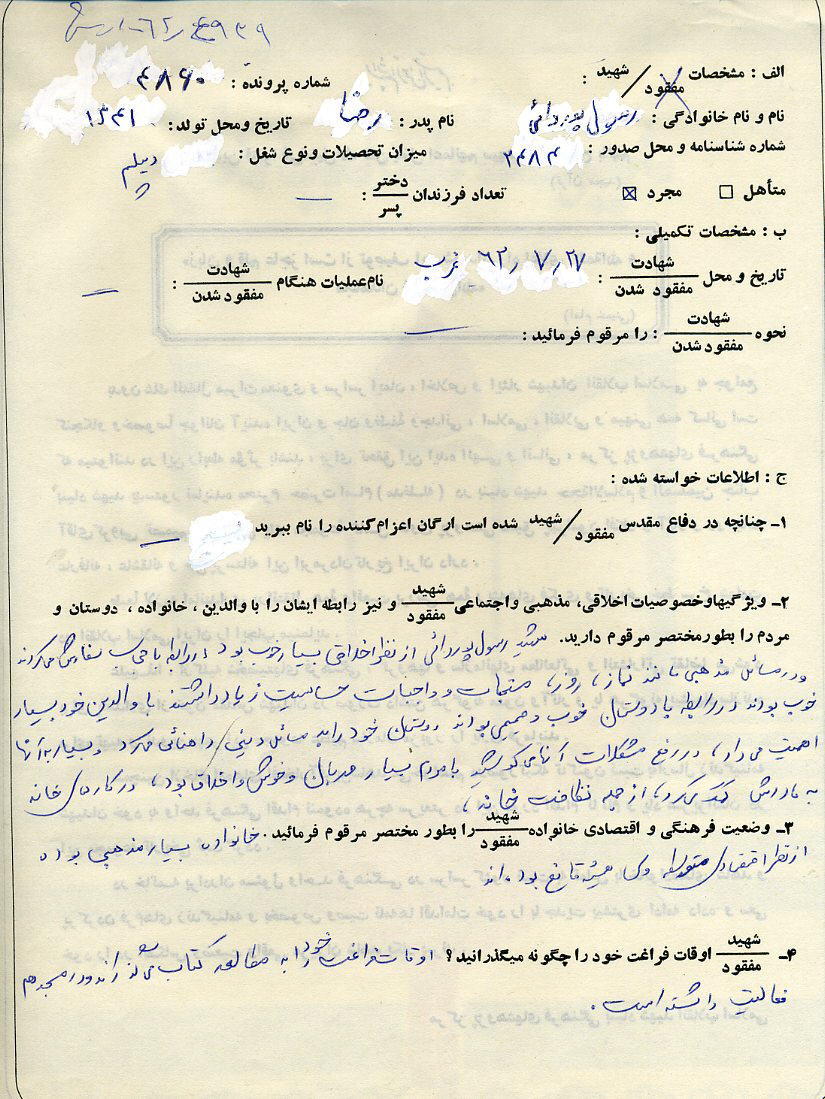 ۶۲٫۴۹۳۹
الف : مشخصات شهید / مفقود :
شماره پرونده : ۴۸۶۰
نام و نام خانوادگی : رسول پوروائی نام پدر : رضا تاریخ ومحل تولد : ۱۳۴۱
شماره شناسنامه و محل صدور : ۲۴۸۴ میزان تحصیلات ونوع شغل : دیپلم
متأهل ☐ مجرد ☒ تعداد فرزندان دختر / پسر : —
ب : مشخصات تکمیلی :
تاریخ و محل شهادت / مفقود شدن : ۶۲٫۷٫۲۷ نام عملیات هنگام شهادت / مفقود شدن : —
نحوه شهادت / مفقود شدن : را مرقوم فرمائید : —
ج : اطلاعات خواسته شده :
۱ـ چنانچه در دفاع مقدس شهید / مفقود شده است ارگان اعزام‌کننده را نام ببرید —
۲ـ ویژگیهاوخصوصیات اخلاقی، مذهبی واجتماعی شهید / مفقود و نیز رابطه ایشان را با والدین ، خانواده ، دوستان و
مردم را بطورمختصر مرقوم دارید. شهید رسول پوروائی از نظر اخلاقی بسیار خوب بود در رابطه با حجاب سفارش میکردند
و در مسائل مذهبی مانند نماز، روزه، مستحبات و واجبات حساسیت زیاد داشتند با والدین خود بسیار
خوب بودند در رابطه با دوستان خوب و صمیمی بودند دوستان خود را به مسائل دینی راهنمائی میکرد و بسیار به آنها
اهمیت می داد، در رفع مشکلات آنها می کوشید با مردم بسیار مهربان و خوش اخلاق بود، در کارهای خانه
به مادرش کمک می‌کرد، از جمله نظافت خانه،
۳ـ وضعیت فرهنگی و اقتصادی خانواده شهید / مفقود را بطور مختصر مرقوم فرمائید. خانواده بسیار مذهبی بوده
از نظر اقتصادی متوسط ولی همیشه قانع بوده اند
۴ـ شهید / مفقود اوقات فراغت خود را چگونه میگذرانید؟ اوقات فراغت خود را به مطالعه کتاب می گذراند و در مسجد هم
فعالیت داشته است.